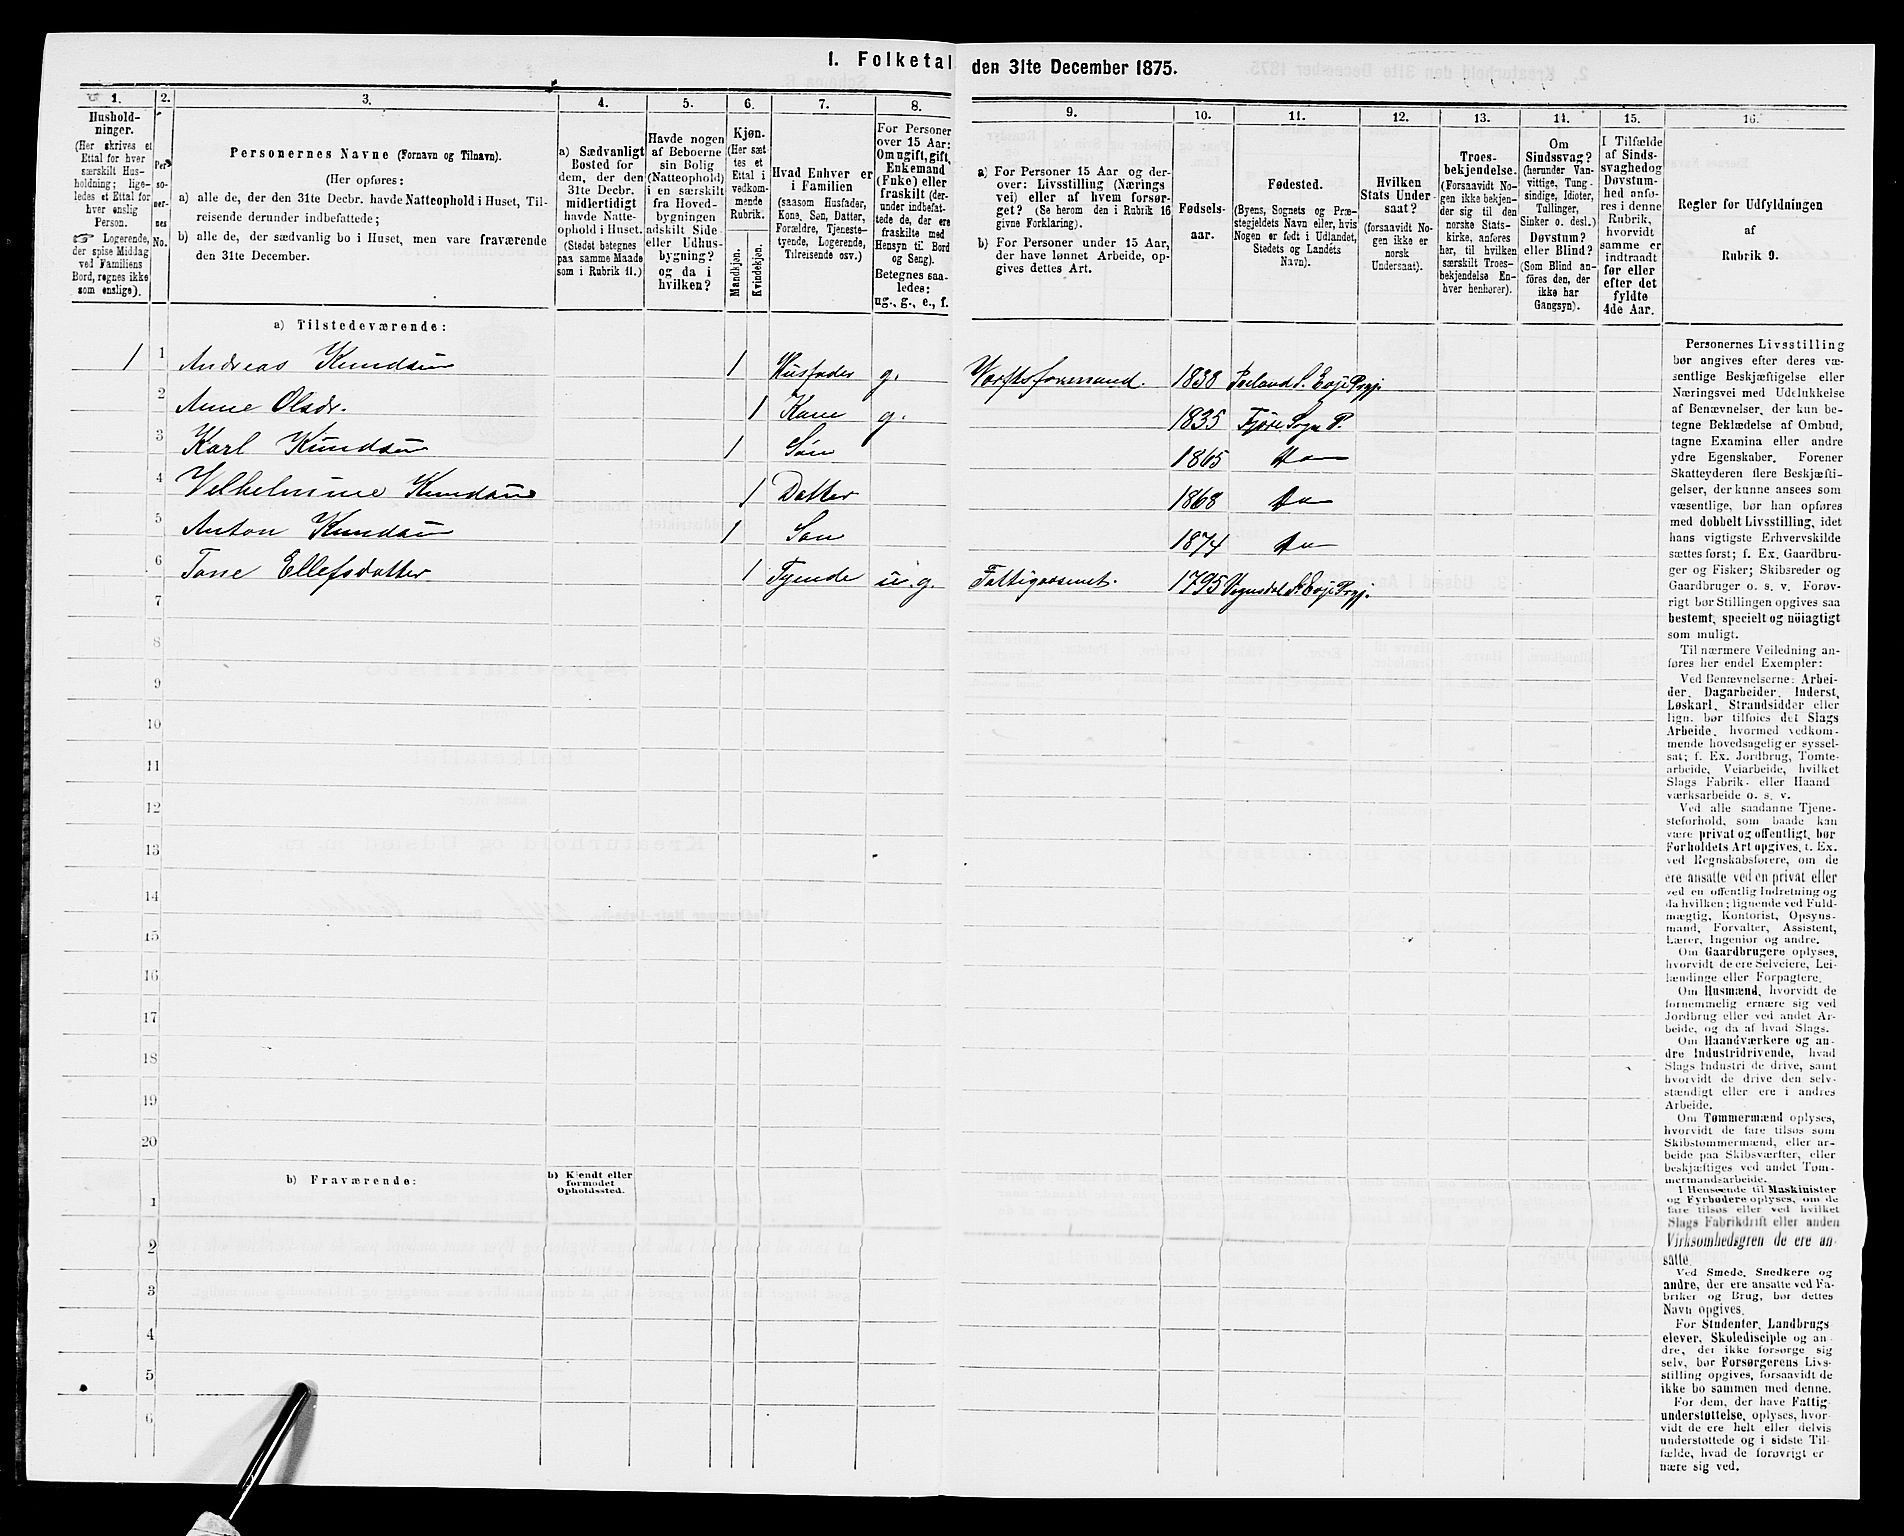 1. Folketal den 31te December 1875.
1. 2. 3. 4. 5. 6. 7. 8. 9. 10. 11. 12. 13. 14. 15. 16.
Hushold-
ninger.
(Her skrives et
Ettal for hver
særskilt Hus-
holdning; lige-
ledes et Ettal for
hver enslig
Person.
☞ Logerende,
der spise Middag
ved Familiens
Bord, regnes ikke
som enslige).
Per-
so-
ner-
nes
No.
Personernes Navne (Fornavn og Tilnavn).
(Her opføres:
a) alle de, der den 31te Decbr. havde Natteophold i Huset, Til-
reisende derunder indbefattede;
b) alle de, der sædvanlig bo i Huset, men vare fraværende
den 31te December.
a) Sædvanligt
Bosted for
dem, der den
31te Decbr.
midlertidigt
havde Natte-
ophold i Huset.
(Stedet betegnes
paa samme Maade
som i Rubrik 11.)
Havde nogen
af Beboerne
sin Bolig
(Natteophold)
i en særskilt
fra Hoved-
bygningen
adskilt Side-
eller Udhus-
bygning?
og da i
hvilken?
Kjøn.
(Her sæt-
tes et
Ettal i
vedkom-
mende
Rubrik.
Mandkjøn.
Kvindekjøn.
Hvad Enhver er
i Familien
(saasom Husfader,
Kone, Søn, Datter,
Forældre, Tjeneste-
tyende, Logerende,
Tilreisende osv.)
For Personer
over 15 Aar:
Om ugift, gift,
Enkemand
(Enke) eller
fraskilt (der-
under indbefat-
tede de, der ere
fraskilte med
Hensyn til Bord
og Seng).
Betegnes saa-
ledes:
ug., g., e., f.
a) For Personer 15 Aar og der-
over: Livsstilling (Nærings
vei) eller af hvem forsør-
get? (Se herom den i Rubrik 16
givne Forklaring).
b) For Personer under 15 Aar,
der have lønnet Arbeide, op-
gives dettes Art.
Fødsels-
aar.
Fødested.
(Byens, Sognets og Præ-
stegjeldets Navn eller, hvis
Nogen er født i Udlandet,
Stedets og Landets
Navn).
Hvilken
Stats Under-
saat?
(forsaavidt No-
gen ikke er
norsk
Undersaat).
Troes-
bekjendelse.
(Forsaavidt No-
gen ikke bekjen-
der sig til den
norske Stats-
kirke, anføres
her, til hvilken
særskilt Troes-
bekjendelse En-
hver henhører).
Om
Sindssvag?
(herunder Van-
vittige, Tung-
sindige, Idioter,
Tullinger,
Sinker o. desl.)
Døvstum?
eller Blind?
(Som Blind an-
føres den, der
ikke har
Gangsyn).
I Tilfælde
af Sinds-
svaghed og
Døvstum-
hed anfø-
res i denne
Rubrik,
hvorvidt
samme er
indtraadt
før eller
efter det
fyldte
4de Aar.
Regler for Udfyldningen
af
Rubrik 9.
a) Tilstedeværende:
1 1 Andreas Knudsen 1 Husfader g. Værftsformand. 1838 S. Eoje Prgj.
2 Anne Olsdr. 1 Kone g. 1835 Fjære Sogn P.
3 Karl Knudsen 1 Søn 1865 do
4 Velhelmine Knudsen 1 Datter 1868 do
5 Anton Knudsen 1 Søn 1874 do
6 Tone Ellefsdatter 1 Tyende u. g. Fattigvæsenet. 1795 Vegusdal S. Eoje Prgj.
7
8
9
10
11
12
13
14
15
16
17
18
19
20
b) Fraværende:
b) Kjendt eller
formodet
Opholdssted.
1
2
3
4
5
6
Personernes Livsstilling
bør angives efter deres væ-
sentlige Beskjæftigelse eller
Næringsvei med Udelukkelse
af Benævnelser, der kun be-
tegne Beklædelse af Ombud,
tagne Examina eller andre
ydre Egenskaber. Forener
Skatteyderen flere Beskjæfti-
gelser, der kunne ansees som
væsentlige, bør han opføres
med dobbelt Livsstilling, idet
hans vigtigste Erhvervskilde
sættes først; f. Ex. Gaardbru-
ger og Fisker; Skibsreder og
Gaardbruger o. s. v. Forøv-
rigt bør Stillingen opgives saa
bestemt, specielt og nöiagtigt
som muligt.
Til nærmere Veiledning an-
føres her endel Exempler:
Ved Benævnelserne: Arbei-
der, Dagarbeider, Inderst,
Løskarl, Strandsidder eller
lign. bør tilføies det Slags
Arbeide, hvormed vedkom-
mende hovedsagelig er syssel-
sat; f. Ex. Jordbrug, Tomte-
arbeide, Veiarbeide, hvilket
Slags Fabrik- eller Haand
værksarbeide o. s. v.
Ved alle saadanne Tjene-
steforhold, som baade kan
være privat og offentligt, bør
Forholdets Art opgives, t. Ex.
ved Regnskabsførere, om de
ere ansatte ved en privat eller
ved en offentlig Indretning og
da hvilken; lignende ved Fuld-
mægtig, Kontorist, Opsyns-
mand, Forvalter, Assistent,
Lærer, Ingeniør og andre.
Om Gaardbrugere oplyses,
hvorvidt de ere Selveiere, Lei-
lændinge eller Forpagtere.
Om Husmænd, hvorvidt de
fornemmelig ernære sig ved
Jordbrug eller ved andet Ar-
beide, og da af hvad Slags.
Om Haandværkere og an-
dre Industridrivende, hvad
Slags Industri de drive, samt
hvorvidt de drive den selv-
stændigt eller ere i andres
Arbeide.
Om Tømmermænd oplyses,
hvorvidt de fare tilsøs som
Skibstømmermænd, eller ar-
beide paa Skibsværfter, eller
beskjæftiges ved andet Tøm-
mermandsarbeide.
I Henseende til Maskinister
og Fyrbødere oplyses, om de
fare tilsøs eller ved hvilket
Slags Fabrikdrift eller anden
Virksomhedsgren de ere an-
satte.
Ved Smede, Snedkere og
andre, der ere ansatte ved Fa-
briker og Brug, bør dettes
Navn opgives.
For Studenter, Landbrugs
elever, Skoledisciple og an-
dre, der ikke forsørge sig
selv, bør Forsørgerens Livs-
stilling opgives, forsaavidt de
ikke bo sammen med denne.
For dem, der have Fattig
understøttelse, oplyses, hvor-
vidt de ere helt eller delvis
understøttede og i sidste Til-
fælde, hvad de forøvrigt er
nære sig ved.